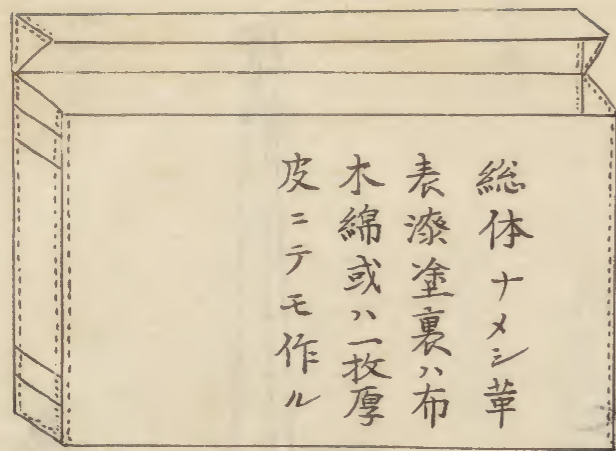 総体ナメシ革
表漆塗裏ハ布
木綿或ハ一枚厚
皮ニテモ作ル